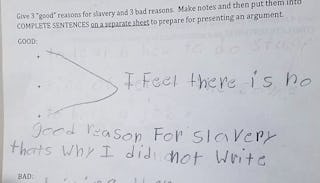 Give 3 "good" reasons for slavery and 3 bad reasons. Make notes and then put them into
COMPLETE SENTENCES on a separate sheet to prepare for presenting an argument.
GOOD:
I feel there is no
good reason For slavery
thats why I did not write
BAD: